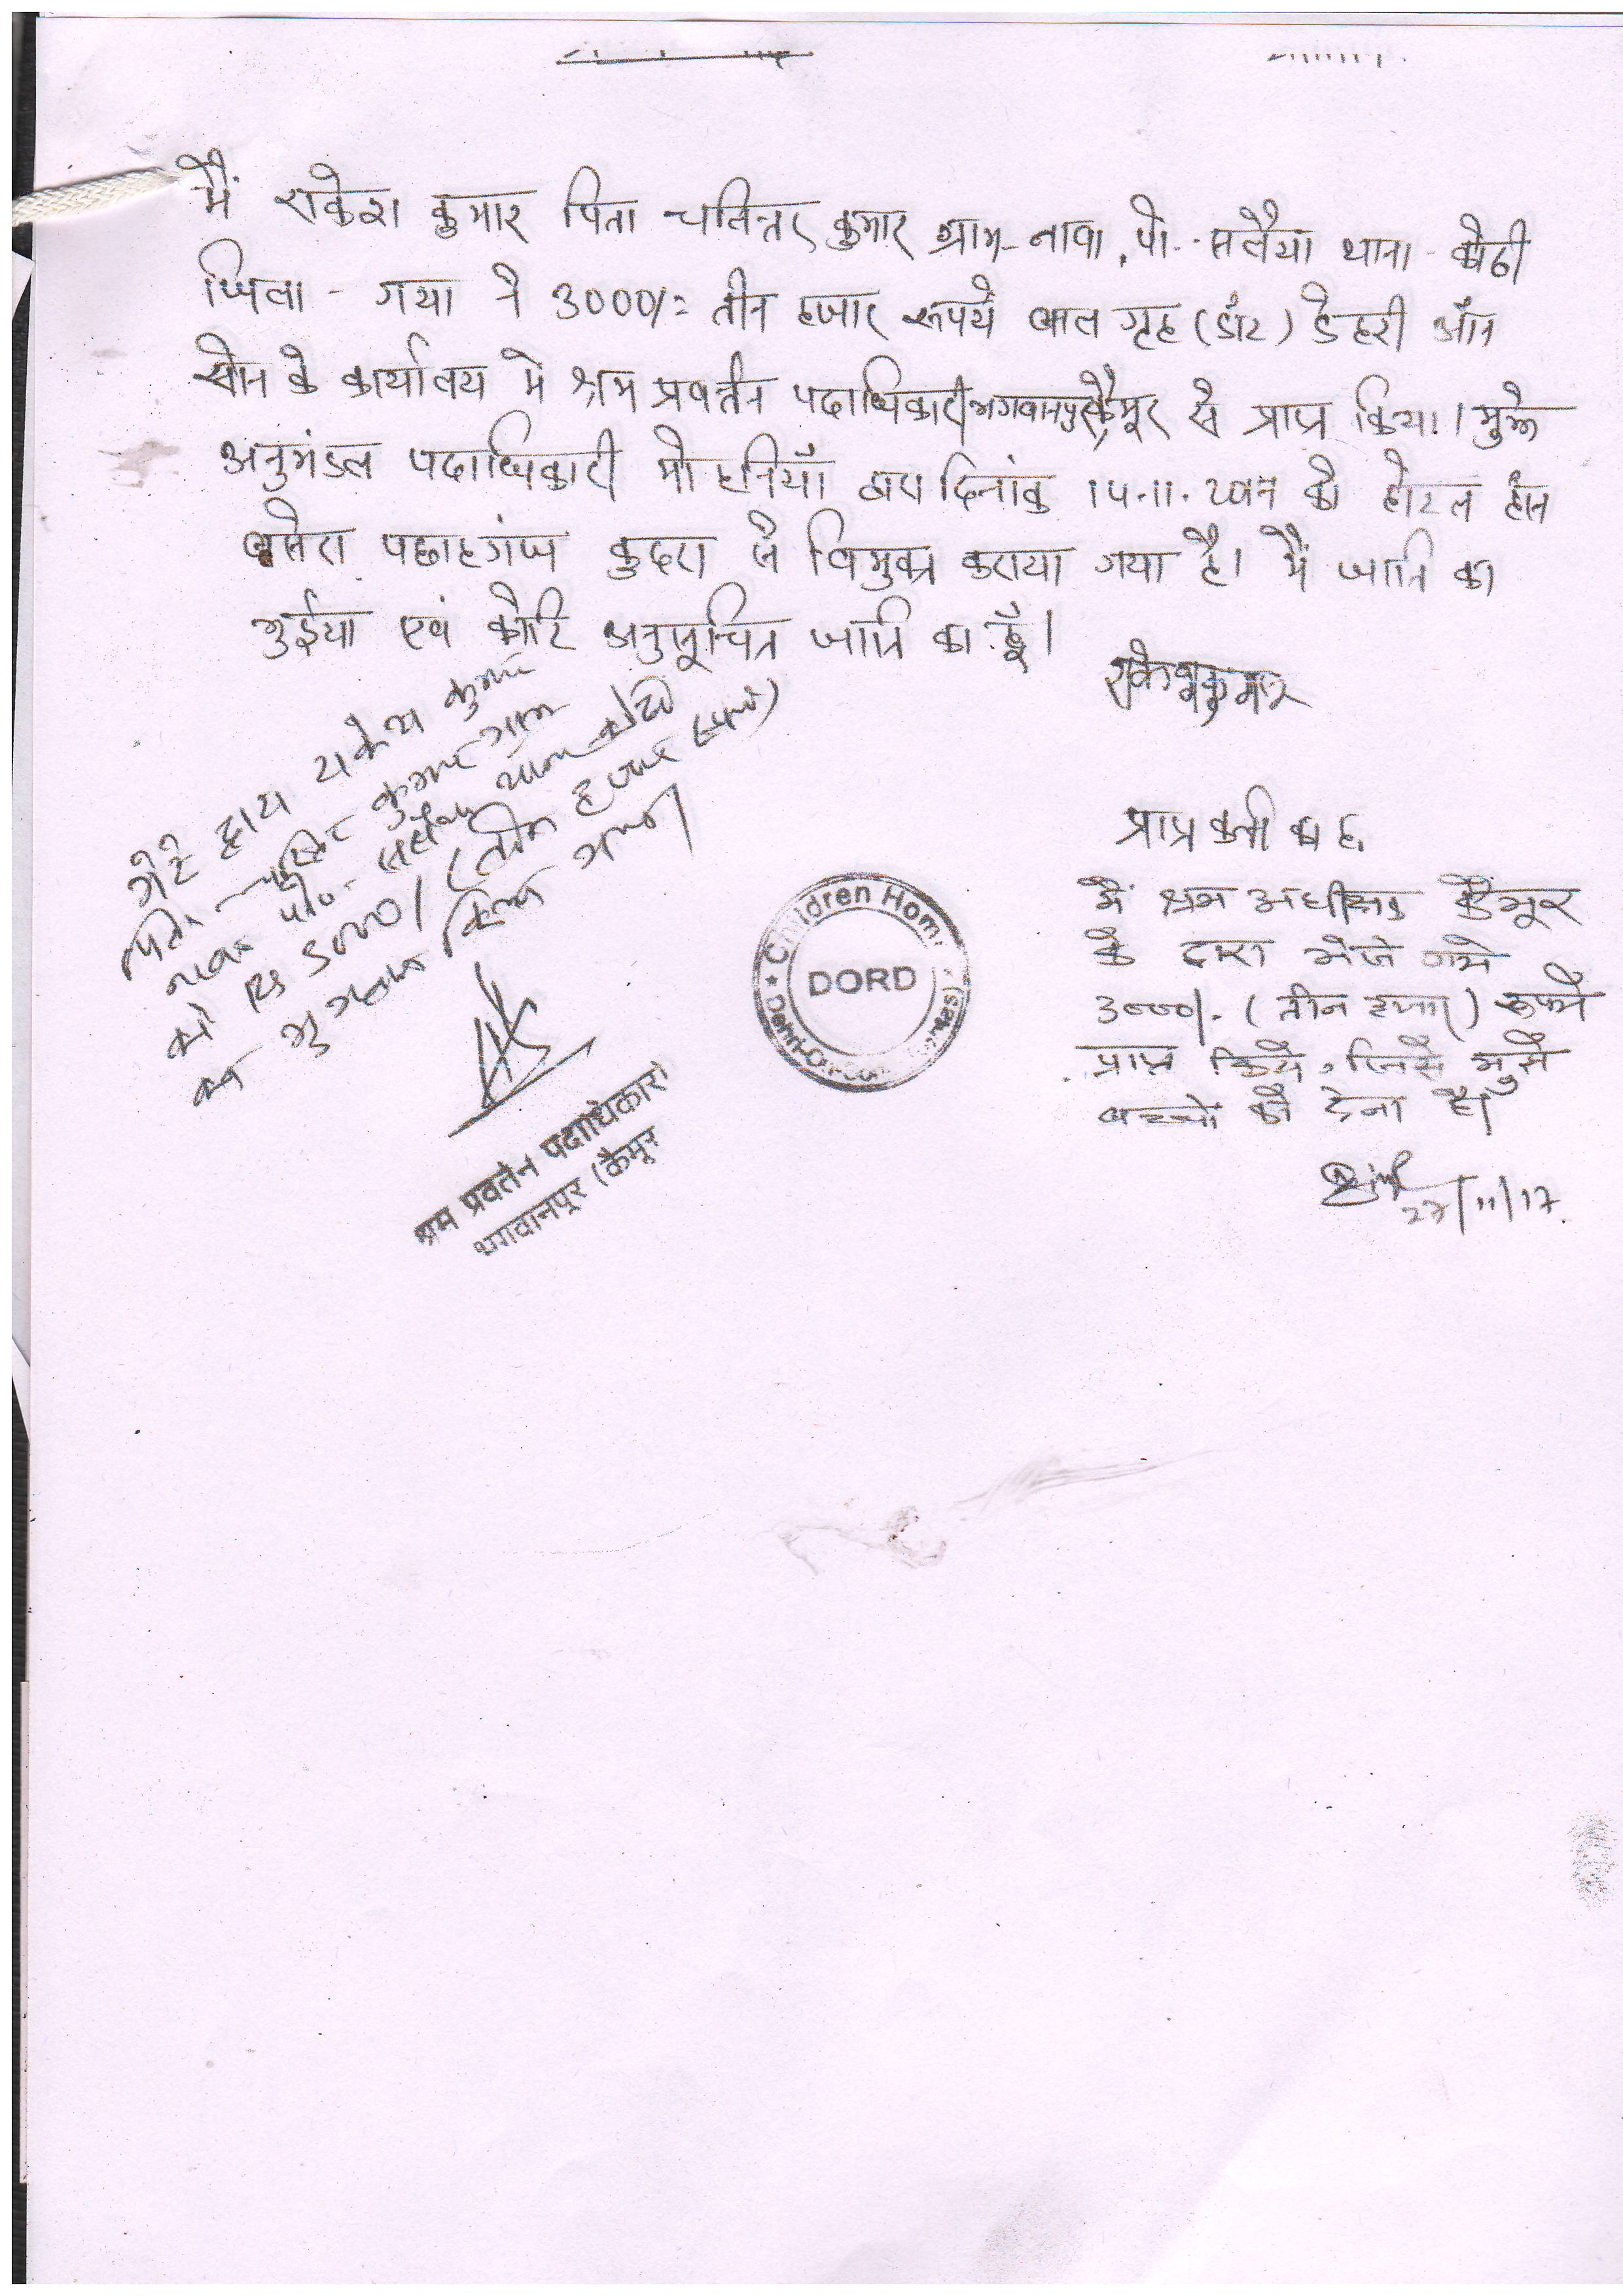 मैं राकेश कुमार पिता चलितर कुमार ग्राम-नावा, पो.- सलैया थाना - कोठी
जिला - गया ने 3000/= तीन हजार रूपये बाल गृह (डॉट) डेहरी ऑन
सोन के कार्यालय मे श्रम प्रवर्तन पदाधिकारी भगवानपुर, कैमूर से प्राप्त किया। मुझे
अनुमंडल पदाधिकारी मोहनियाँ द्वारा दिनांक को होटल
बसेरा पछाहगंज कुदरा से विमुक्त कराया गया है। मैं जाति का
भुईया एवं कोटि अनुसूचित जाति का हूँ।
राकेश कुमार
मेरे द्वारा राकेश कुमार
पिता- कुमार ग्राम
नावा पो०- सलैया थाना कोठी
को Rs 3000/ (तीन हजार रूपये)
का भुगतान किया गया।
श्रम प्रवर्तन पदाधिकारी
भगवानपुर (कैमूर
Children Hom
DORD
Dehri-On-
प्राप्त कर्ता का ह.
मैं श्रम अधीक्षक कैमूर
के द्वारा भेजे गये
3000/- (तीन हजार) रूपये
प्राप्त किये, जिसे मुझे
बच्चो को देना है।
27/11/17.